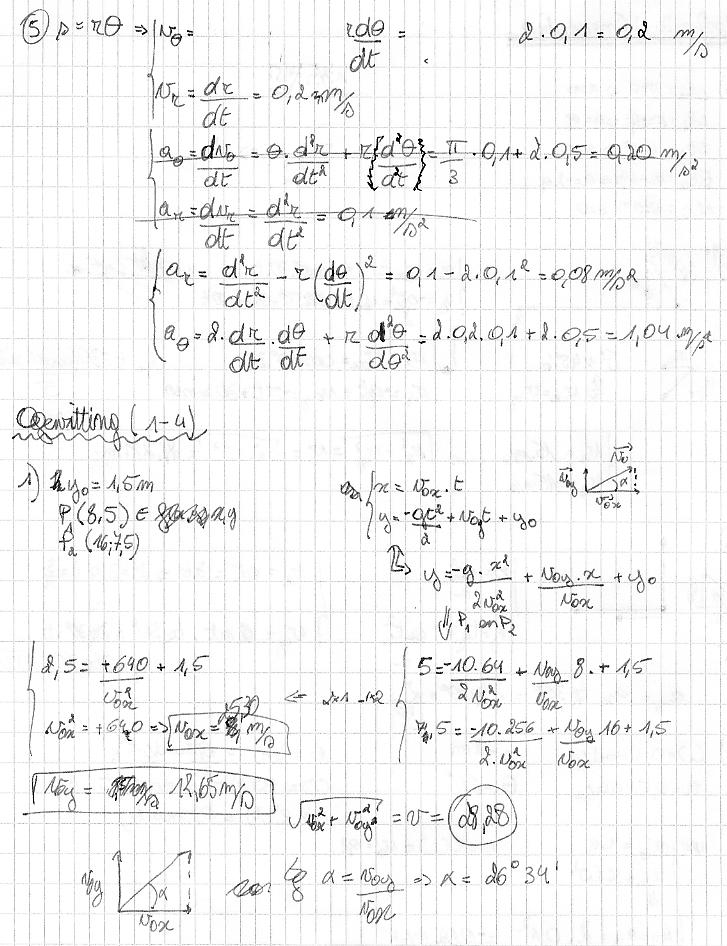 ⑤ s = rθ ⇒ { v_θ = r dθ/dt = 2 · 0,1 = 0,2 m/s
v_r = dr/dt = 0,2 m/s
a_θ = dv_θ/dt = θ · d²r/dt² + r {d²θ/d²t} = π/3 · 0,1 + 2 · 0,5 = 0,20 m/s²
a_r = dv_r/dt = d²r/dt² = 0,1 m/s²
{ a_r = d²r/dt² - r (dθ/dt)² = 0,1 - 2 · 0,1² = 0,08 m/s²
a_θ = 2 · dr/dt · dθ/dt + r d²θ/dθ² = 2 · 0,2 · 0,1 + 2 · 0,5 = 1,04 m/s²
(1-4)
1) y₀ = 1,5 m
P₁ (8,5) ∈ x,y
P₂ (16;7,5)
{ x = v₀ₓ · t
y = -gt²/2 + v₀y t + y₀
v₀y v₀ α v₀ₓ
⇒ y = -g · x²/2v₀ₓ² + v₀y · x/v₀ₓ + y₀
⇓ P₁ en P₂
{ 5 = -10·64/2v₀ₓ² + v₀y/v₀ₓ 8 · + 1,5
7,5 = -10·256/2·v₀ₓ² + v₀y/v₀ₓ 16 + 1,5
⇐
{ 2,5 = +640/v₀ₓ² + 1,5
v₀ₓ² = +640 ⇒ v₀ₓ = 25,30 m/s
v₀y = 12,65 m/s
√v₀ₓ² + v₀y² = v = 28,28
v₀y α v₀ₓ
tg α = v₀y/v₀ₓ ⇒ α = 26° 34'